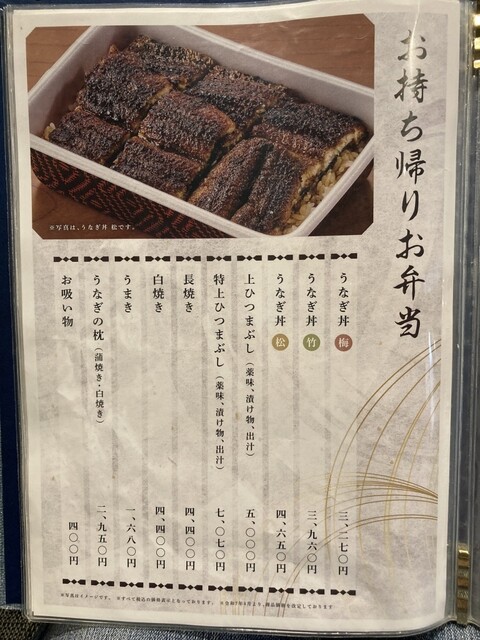 お持ち帰りお弁当
※写真は、うなぎ丼 松です。
うなぎ丼 梅 三、二七〇円
うなぎ丼 竹 三、九六〇円
うなぎ丼 松 四、六五〇円
上ひつまぶし（薬味、漬け物、出汁） 五、〇〇〇円
特上ひつまぶし（薬味、漬け物、出汁） 七、〇七〇円
長焼き 四、四〇〇円
白焼き 四、四〇〇円
うまき 一、六八〇円
うなぎの枕（蒲焼き・白焼き） 二、九五〇円
お吸い物 四〇〇円
※写真はイメージです。 ※すべて税込の価格表示となっております。